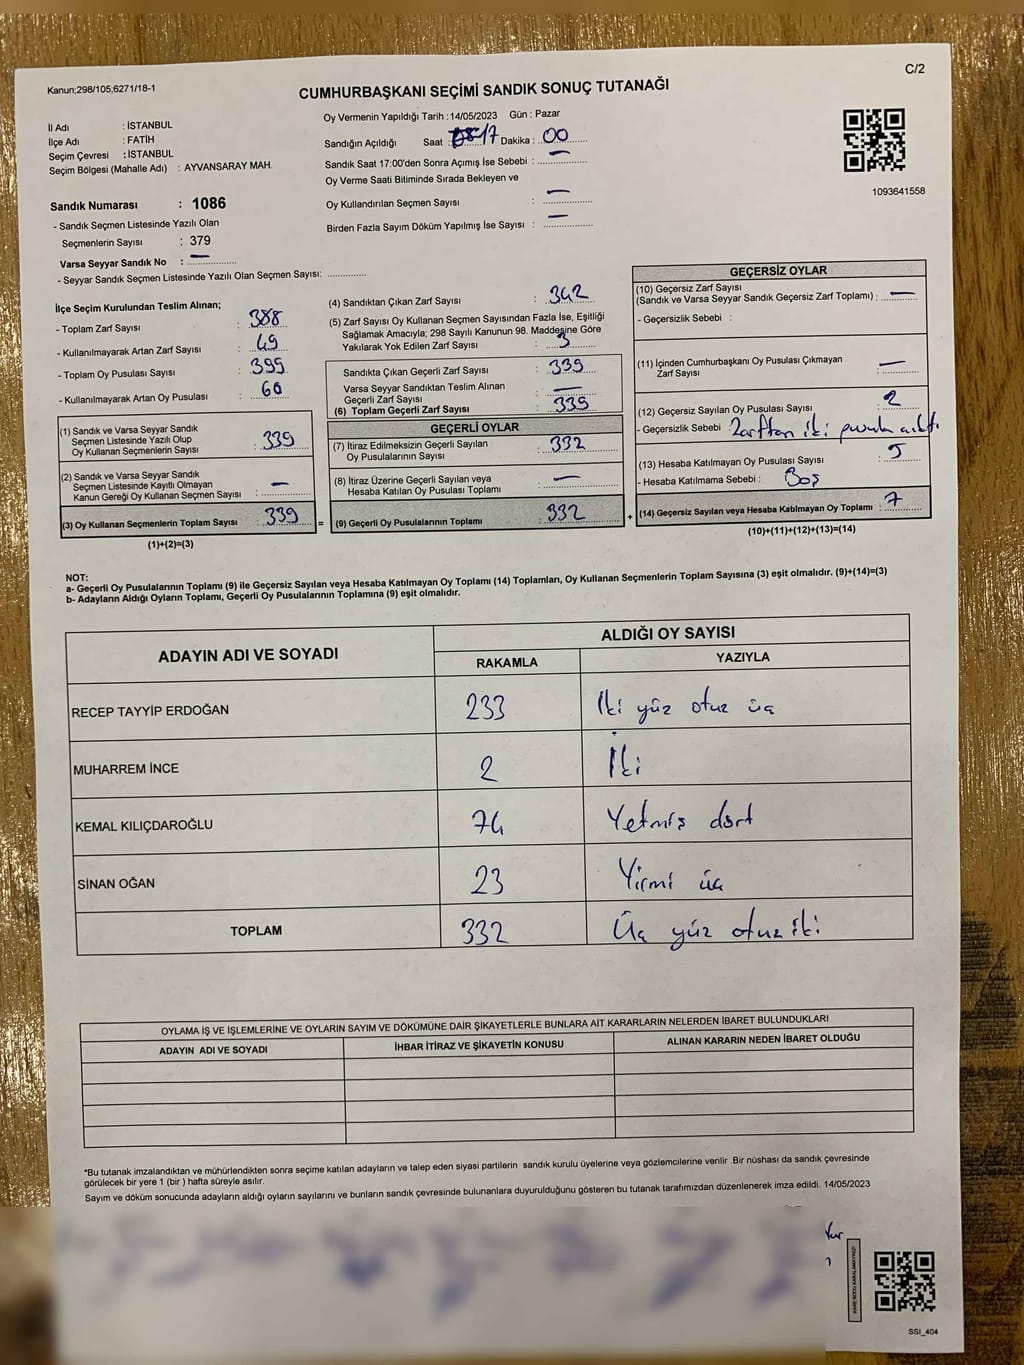 C/2
Kanun;298/105;6271/18-1
CUMHURBAŞKANI SEÇİMİ SANDIK SONUÇ TUTANAĞI
İl Adı : İSTANBUL
İlçe Adı : FATİH
Seçim Çevresi : İSTANBUL
Seçim Bölgesi (Mahalle Adı) : AYVANSARAY MAH.
Oy Vermenin Yapıldığı Tarih : 14/05/2023 Gün : Pazar
Sandığın Açıldığı Saat : 17 Dakika : 00
Sandık Saat 17:00'den Sonra Açımış İse Sebebi : —
Oy Verme Saati Bitiminde Sırada Bekleyen ve
Oy Kullandırılan Seçmen Sayısı : —
Birden Fazla Sayım Döküm Yapılmış İse Sayısı : —
1093641558
Sandık Numarası : 1086
- Sandık Seçmen Listesinde Yazılı Olan
Seçmenlerin Sayısı : 379
Varsa Seyyar Sandık No : —
- Seyyar Sandık Seçmen Listesinde Yazılı Olan Seçmen Sayısı:
İlçe Seçim Kurulundan Teslim Alınan;
- Toplam Zarf Sayısı : 388
- Kullanılmayarak Artan Zarf Sayısı : 49
- Toplam Oy Pusulası Sayısı : 399
- Kullanılmayarak Artan Oy Pusulası : 60
(1) Sandık ve Varsa Seyyar Sandık
Seçmen Listesinde Yazılı Olup
Oy Kullanan Seçmenlerin Sayısı : 339
(2) Sandık ve Varsa Seyyar Sandık
Seçmen Listesinde Kayıtlı Olmayan
Kanun Gereği Oy Kullanan Seçmen Sayısı : —
(3) Oy Kullanan Seçmenlerin Toplam Sayısı : 339
(1)+(2)=(3)
(4) Sandıktan Çıkan Zarf Sayısı : 342
(5) Zarf Sayısı Oy Kullanan Seçmen Sayısından Fazla İse, Eşitliği
Sağlamak Amacıyla; 298 Sayılı Kanunun 98. Maddesine Göre
Yakılarak Yok Edilen Zarf Sayısı : 3
Sandıkta Çıkan Geçerli Zarf Sayısı : 339
Varsa Seyyar Sandıktan Teslim Alınan
Geçerli Zarf Sayısı : —
(6) Toplam Geçerli Zarf Sayısı : 339
GEÇERLİ OYLAR
(7) İtiraz Edilmeksizin Geçerli Sayılan
Oy Pusulalarının Sayısı : 332
(8) İtiraz Üzerine Geçerli Sayılan veya
Hesaba Katılan Oy Pusulası Toplamı : —
= (9) Geçerli Oy Pusulalarının Toplamı : 332
GEÇERSİZ OYLAR
(10) Geçersiz Zarf Sayısı
(Sandık ve Varsa Seyyar Sandık Geçersiz Zarf Toplamı) : —
- Geçersizlik Sebebi :
(11) İçinden Cumhurbaşkanı Oy Pusulası Çıkmayan
Zarf Sayısı : —
(12) Geçersiz Sayılan Oy Pusulası Sayısı : 2
- Geçersizlik Sebebi : Zarftan iki pusula çıktı
(13) Hesaba Katılmayan Oy Pusulası Sayısı : 5
- Hesaba Katılmama Sebebi : Boş
+ (14) Geçersiz Sayılan veya Hesaba Katılmayan Oy Toplamı : 7
(10)+(11)+(12)+(13)=(14)
NOT:
a- Geçerli Oy Pusulalarının Toplamı (9) ile Geçersiz Sayılan veya Hesaba Katılmayan Oy Toplamı (14) Toplamları, Oy Kullanan Seçmenlerin Toplam Sayısına (3) eşit olmalıdır. (9)+(14)=(3)
b- Adayların Aldığı Oyların Toplamı, Geçerli Oy Pusulalarının Toplamına (9) eşit olmalıdır.
ADAYIN ADI VE SOYADI ALDIĞI OY SAYISI
RAKAMLA YAZIYLA
RECEP TAYYİP ERDOĞAN 233 İki yüz otuz üç
MUHARREM İNCE 2 İki
KEMAL KILIÇDAROĞLU 74 Yetmiş dört
SİNAN OĞAN 23 Yirmi üç
TOPLAM 332 Üç yüz otuz iki
OYLAMA İŞ VE İŞLEMLERİNE VE OYLARIN SAYIM VE DÖKÜMÜNE DAİR ŞİKAYETLERLE BUNLARA AİT KARARLARIN NELERDEN İBARET BULUNDUKLARI
ADAYIN ADI VE SOYADI İHBAR İTİRAZ VE ŞİKAYETİN KONUSU ALINAN KARARIN NEDEN İBARET OLDUĞU
*Bu tutanak imzalandıktan ve mühürlendikten sonra seçime katılan adayların ve talep eden siyasi partilerin sandık kurulu üyelerine veya gözlemcilerine verilir .Bir nüshası da sandık çevresinde
görülecek bir yere 1 (bir ) hafta süreyle asılır.
Sayım ve döküm sonucunda adayların aldığı oyların sayılarını ve bunların sandık çevresinde bulunanlara duyurulduğunu gösteren bu tutanak tarafımızdan düzenlenerek imza edildi. 14/05/2023
SSİ_404